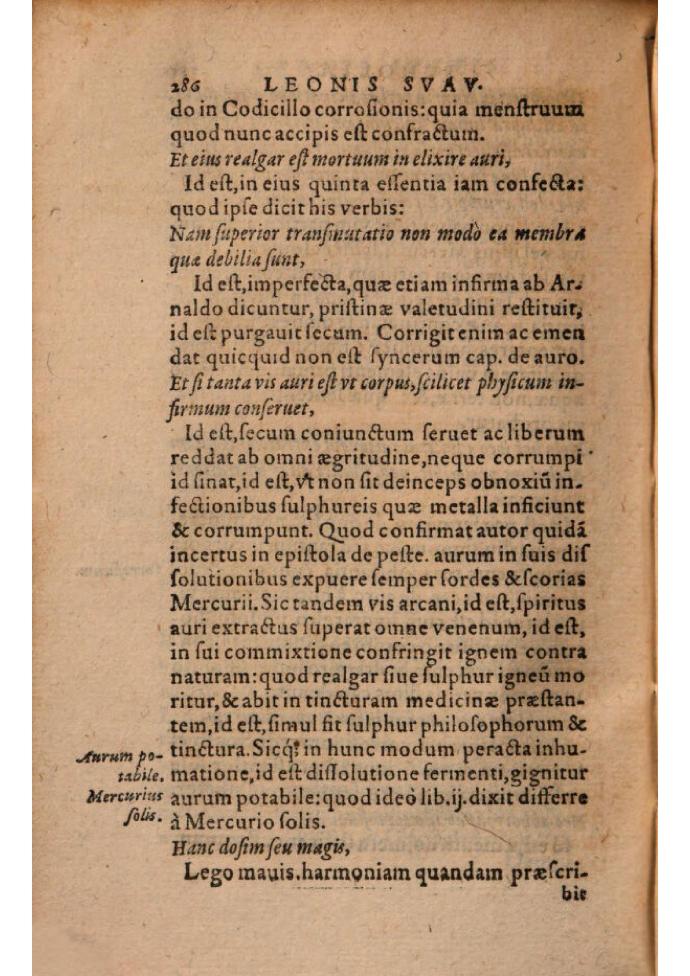 286 LEONIS SVAV.
do in Codicillo corroſionis: quia menſtruum
quod nunc accipis eſt confractum.
Et eius realgar eſt mortuum in elixire auri,
Id eſt, in eius quinta eſſentia iam confecta:
quod ipſe dicit his verbis:
Nam ſuperior tranſmutatio non modò ea membra
quæ debilia ſunt,
Id eſt, imperfecta, quæ etiam infirma ab Ar-
naldo dicuntur, priſtinæ valetudini reſtituit,
id eſt purgauit ſecum. Corrigit enim ac emen
dat quicquid non eſt ſyncerum cap. de auro.
Et ſi tanta vis auri eſt vt corpus, ſcilicet phyſicum in-
firmum conſeruet,
Id eſt, ſecum coniunctum ſeruet ac liberum
reddat ab omni ægritudine, neque corrumpi
id ſinat, id eſt, vt non ſit deinceps obnoxiũ in-
fectionibus ſulphureis quæ metalla inficiunt
& corrumpunt. Quod confirmat autor quidã
incertus in epiſtola de peſte. aurum in ſuis diſ
ſolutionibus expuere ſemper ſordes & ſcorias
Mercurii. Sic tandem vis arcani, id eſt, ſpiritus
auri extractus ſuperat omne venenum, id eſt,
in ſui commixtione confringit ignem contra
naturam: quod realgar ſiue ſulphur igneũ mo
ritur, & abit in tincturam medicinæ præſtan-
tem, id eſt, ſimul fit ſulphur philoſophorum &
tinctura. Sicq; in hunc modum peracta inhu-
matione, id eſt diſſolutione fermenti, gignitur
aurum potabile: quod ideò lib. ij. dixit differre
à Mercurio ſolis.
Aurum po-
tabile.
Mercurius
ſolis.
Hanc doſim ſeu magis,
Lego mauis, harmoniam quandam præſcri-
bit